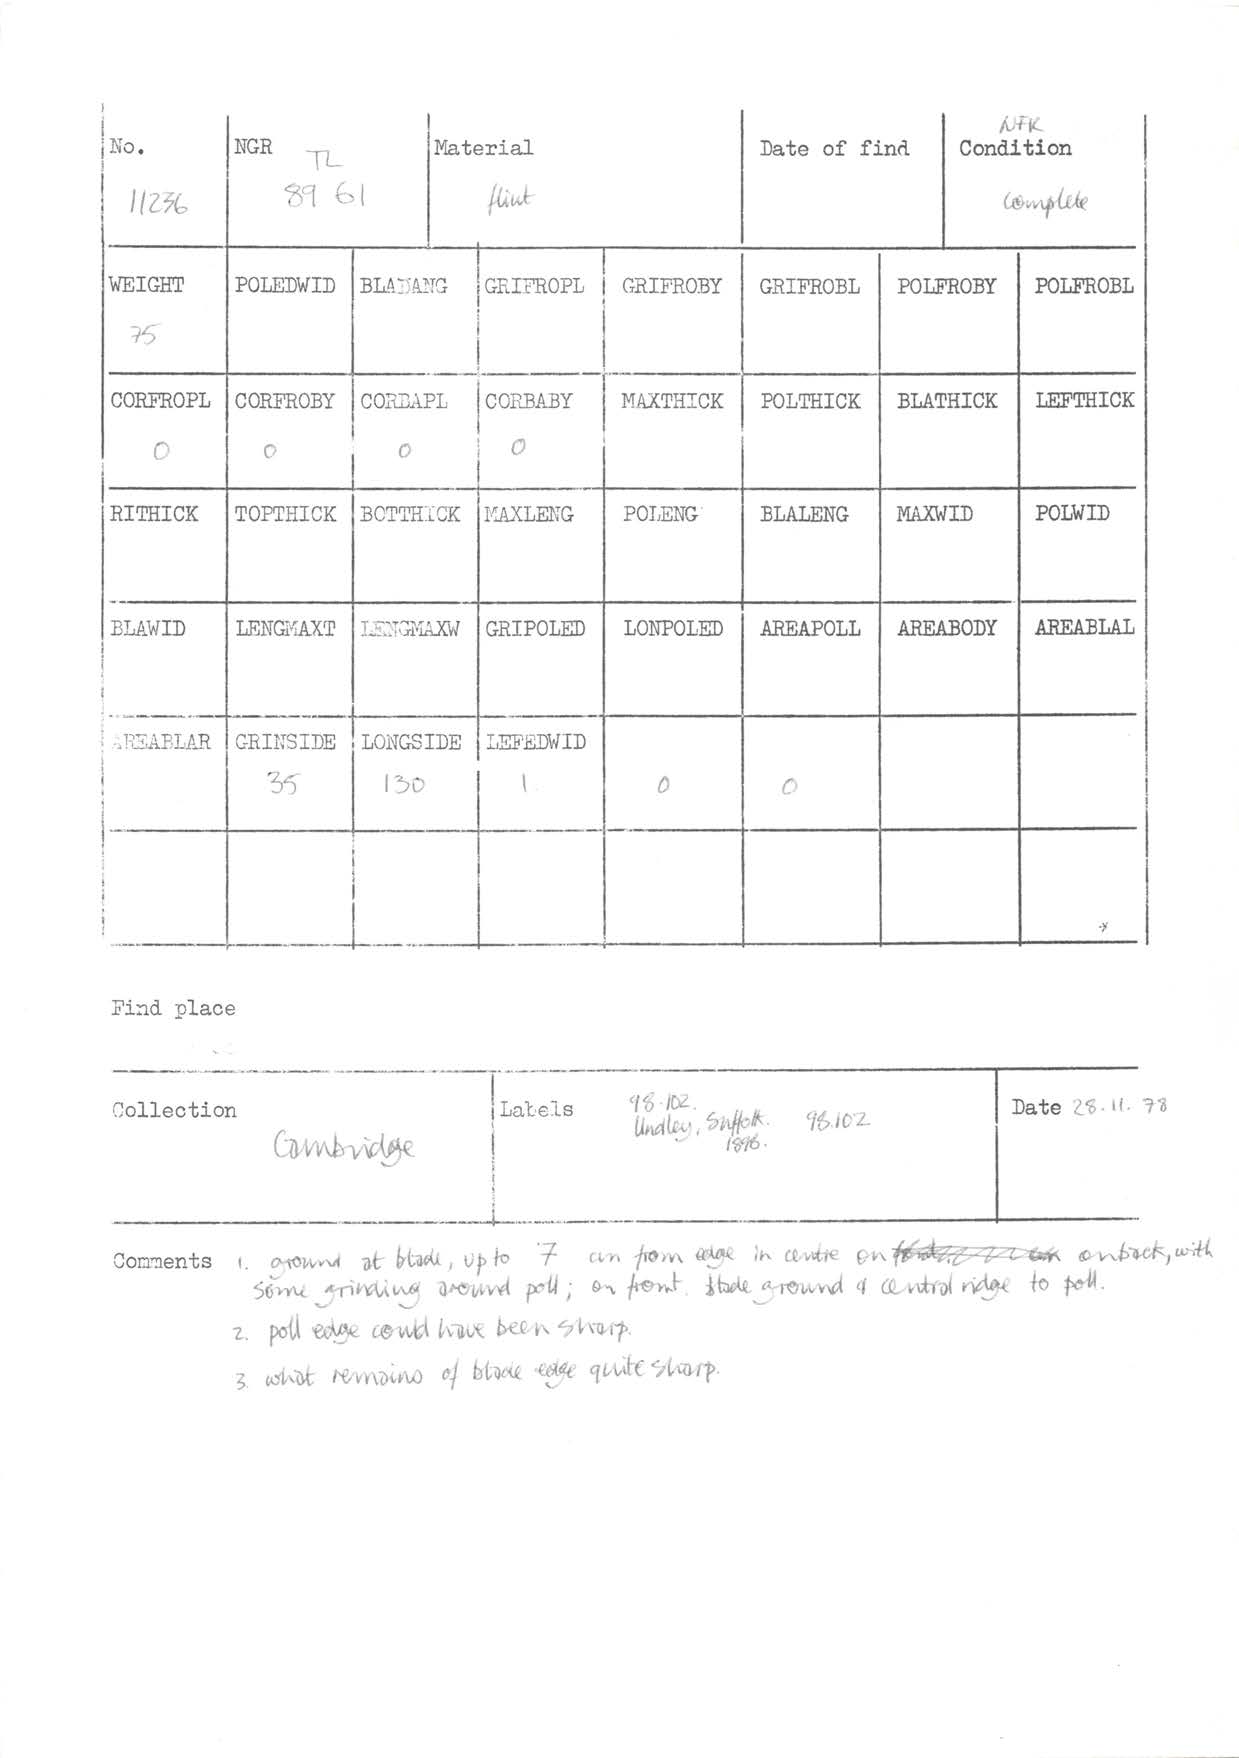 NFK
No. NGR Material Date of find Condition
TL
11236 89 61 flint complete
WEIGHT POLEDWID BLADANG GRIFROPL GRIFROBY GRIFROBL POLFROBY POLFROBL
75
CORFROPL CORFROBY CORBAPL CORBABY MAXTHICK POLTHICK BLATHICK LEFTHICK
0 0 0 0
RITHICK TOPTHICK BOTTHICK MAXLENG POLENG BLALENG MAXWID POLWID
BLAWID LENGMAXT LENGMAXW GRIPOLED LONPOLED AREAPOLL AREABODY AREABLAL
AREABLAR GRINSIDE LONGSIDE LEFEDWID
35 130 1 0 0
Find place
Collection Labels 98.102. Date 28.11.78
Undley, Suffolk. 98.102
1898.
Cambridge
Comments 1. ground at blade, up to 7 cm from edge in centre on on back, with
some grinding around poll; on front. blade ground & central ridge to poll.
2. poll edge could have been sharp.
3. what remains of blade edge quite sharp.